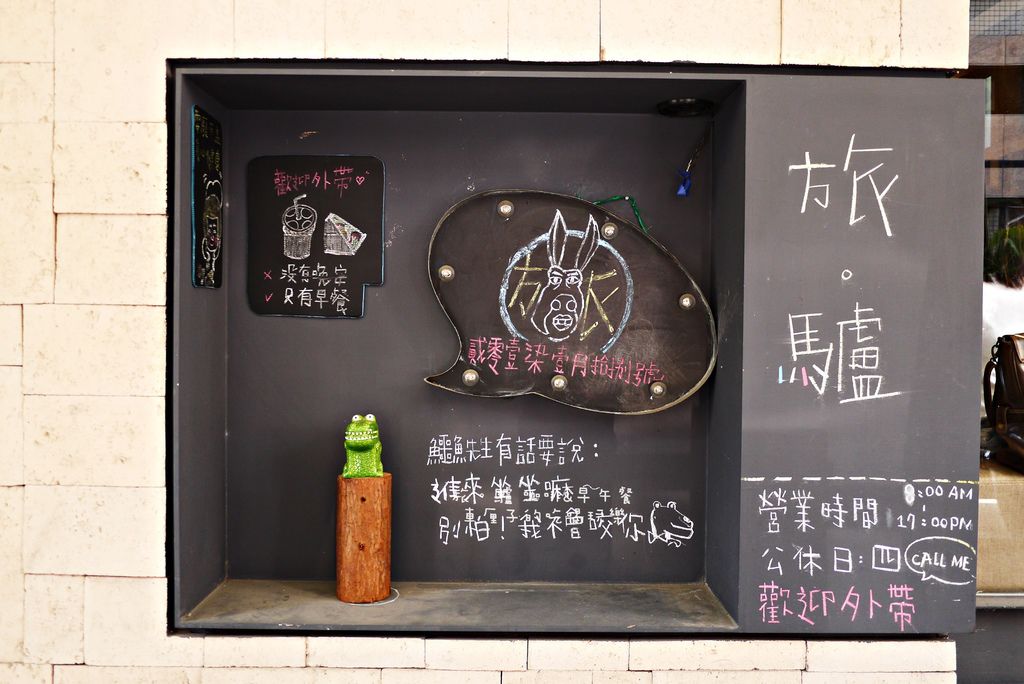 歡迎外帶
✗ 沒有晚安
✓ 只有早餐
旅
貳零壹柒壹月拾捌號
鱷魚先生有話要說：
進來 嘛 早午餐
別怕！我不會 你
旅・驢
營業時間 9:00 AM
17:00PM
公休日：四 CALL ME
歡迎外帶